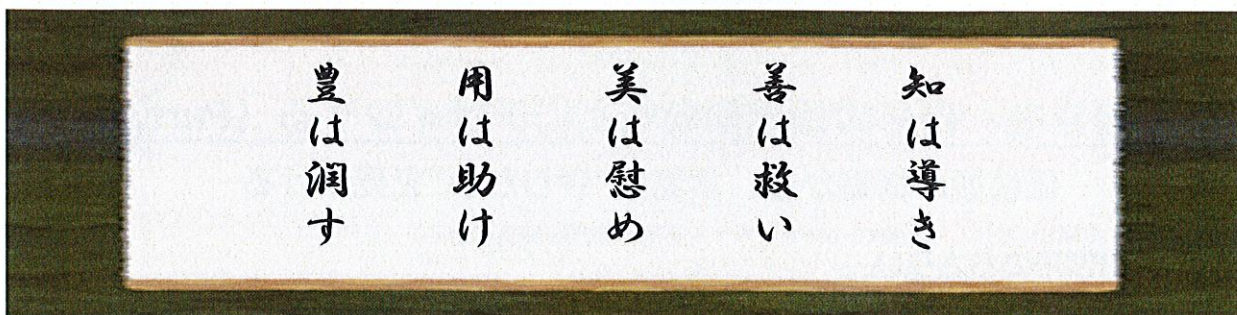 知は導き
善は救い
美は慰め
用は助け
豊は潤す